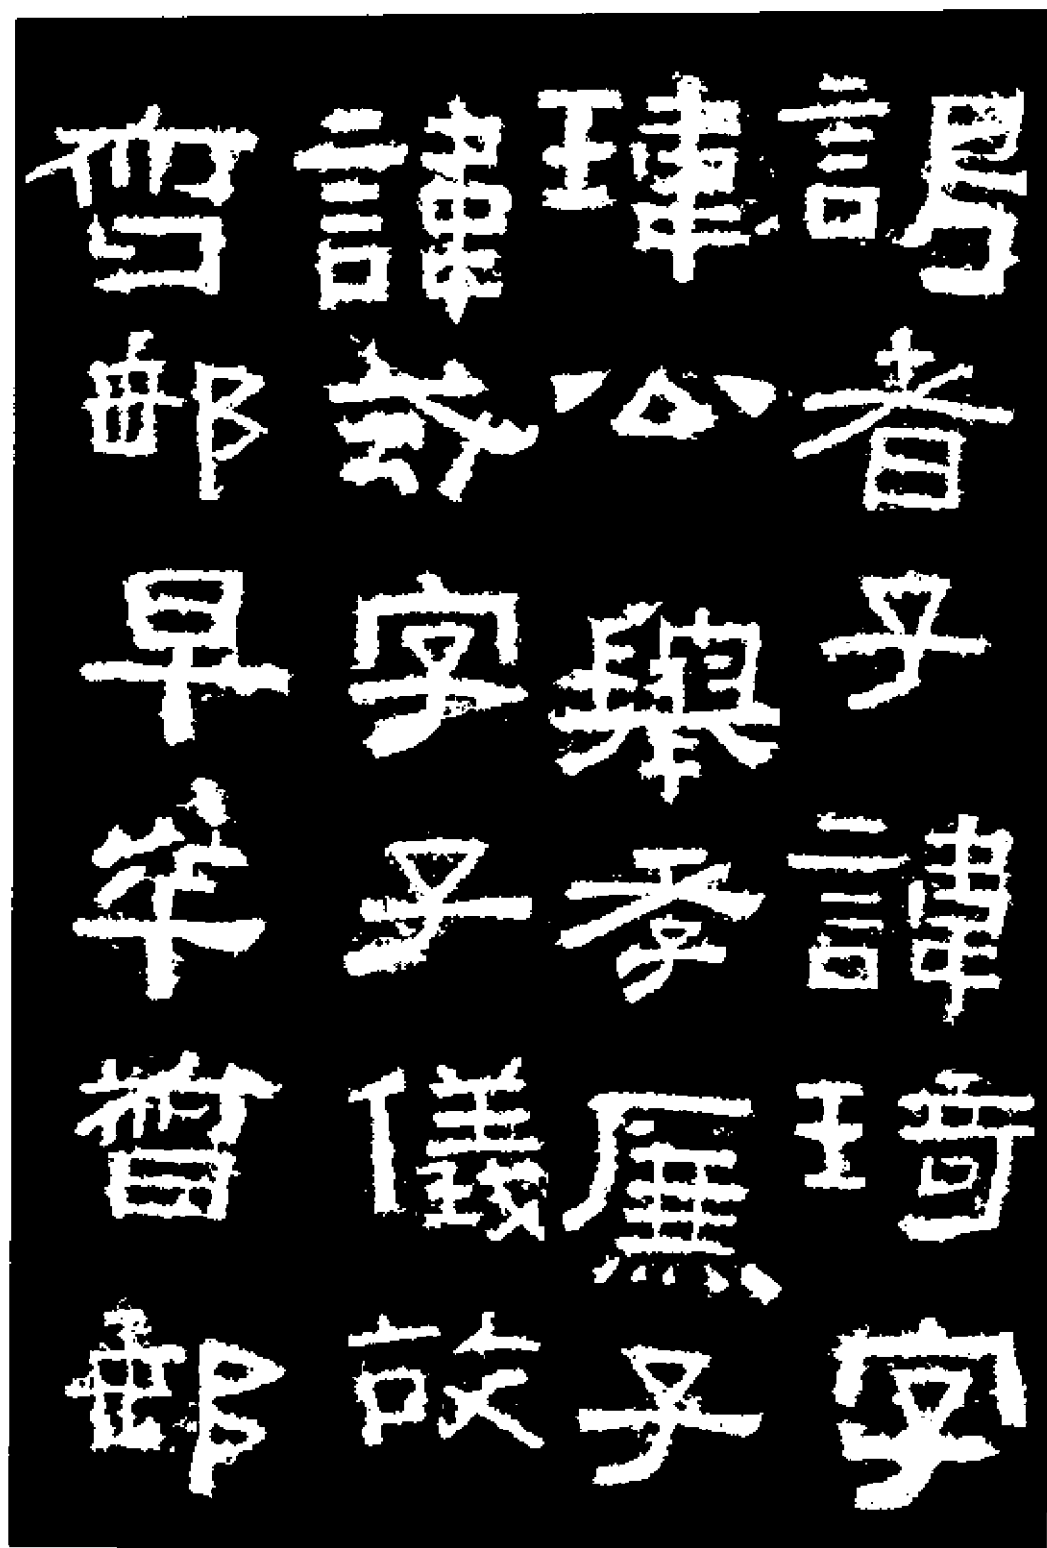 謁者子諱琦字
瑋公舉孝廉子
諱式字子儀故
督郵早卒督郵